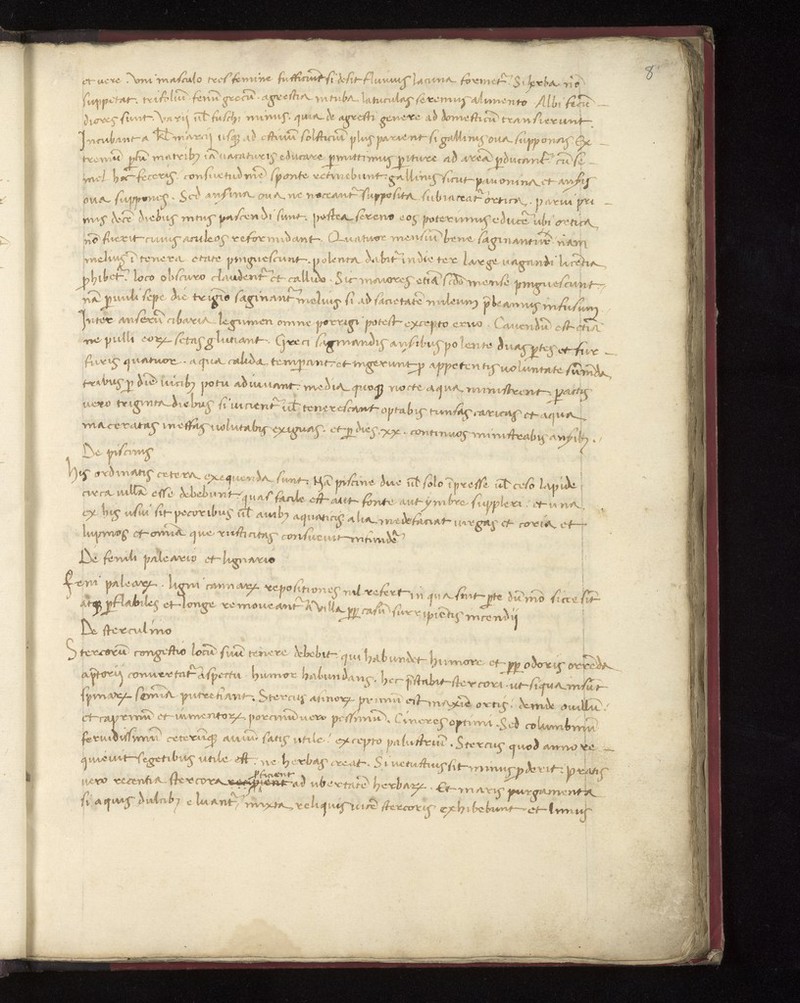 8
et vere. Uni masculo tres femine sufficiũt si desit fluvius lacuna formet᷑. Si herba nõ
suppetat. trifoliũ fenũ grecũ. agrestia intuba latuculas seremus alimento. Albi fecũ
diores sunt. Varii ul̃ fuschi minus. quia de agresti genere ad domesticũ transierunt.
Incubant a kl̃ marcii usq̃ ad estivũ solsticiũ plus parient si gallinis ova supponas. Ex
tremũ ptũ matribꝫ iã vacaturis educare p̃mittimus. piture ad areã p̃ducant᷑. cũ se
mel hoc̃ feceris consuetudinẽ sponte retinebunt. gallinis sicut pavonina et anseris
ova suppones. Sed ansina ova ne noceant᷑ supposita subiaceat᷑ ortica. parvi pri
mis decẽ diebus intus pascendi sunt. postea sereno eos poterimus educer̃ ubi ortica
nõ fuerit cuius aculeos reformidant. Quatuor mensiũ bene saginantur nam
melius ĩ tenera etate pinguescunt. polenta dabit᷑ in die ter large vagandi licẽtia
p̃hibet᷑. loco obscuro claudent᷑ et callido. Sic maiores etiã scd̃o mense pinguescunt
nã parvuli sepe die trigesio saginant᷑ melius si ad sacietatẽ mileum p̃beamus infusum
Inter anserũ cibaria legumen omne porrigi potest excepto ervo. Cavendũ est etiã
ne pulli eorꝝ setas glutiant. Greci saginandis ansibus polente duas p̃tes et fur
furis quatuor. aqua calida temperant et ingerunt p appetentis voluntate sumẽda
tribus p diẽ vicibꝫ potu adiuvant. media quoqꝫ nocte aqua ministrent. pactis
vero triginta diebus si ut tenerescant optabis tunsas caricas et aqua
maceratas in offas volutabis exiguas. et p dies xx. continuos ministrabis ansibꝫ.
De piscinis
His ordinatis cetera exequenda sunt. Nã piscine due ul̃ solo ĩpresse ul̃ ceso lapide
circa villã esse debebunt quas facile est aut fonte aut ymbre suppleri. et una
ex his usui sit pecoribus ul̃ avibꝫ aquaticis alia madefaciat virgas et coria et
lupinos et omnia que rusticitas consuevit intinder̃
De fenili paleario et lignario
Feni palearꝝ. ligni cannarꝝ repositiones nil refert in qua sint p̃te dũmo sicce sint
atqꝫ pflabiles et longe removeant᷑ a villa pp casũ surripientis incendii
De sterculino
Stercorũ congestio locũ suũ tenere debebit qui habundet humore et pp odoris orrẽda
aptorii convertat᷑ aspectu. humor habundans. hec p̃stabit stercori ut siqua insũt
spinarꝝ semĩa putrefiant. Stercus asinorꝝ primũ est maxĩe ortis. deinde ovillũ
et caprinũ et iumentorꝝ. porcinũ vero pessimũ. Cineres optimi. Sed columbinũ
fervidissimũ ceterũqꝫ aviũ satis utile. excepto palustriũ. Stercus quod anno re
quievit segetibus utile est. ne herbas creat. Si vetustius sit minus p̃derit. pratis
vero recentia stercora proficient ad ubertatẽ herbarꝝ. Et maris purgamenta
si aquis dulcibꝫ eluant᷑ mixta reliquis vicẽ stercoris exhibebunt et limus